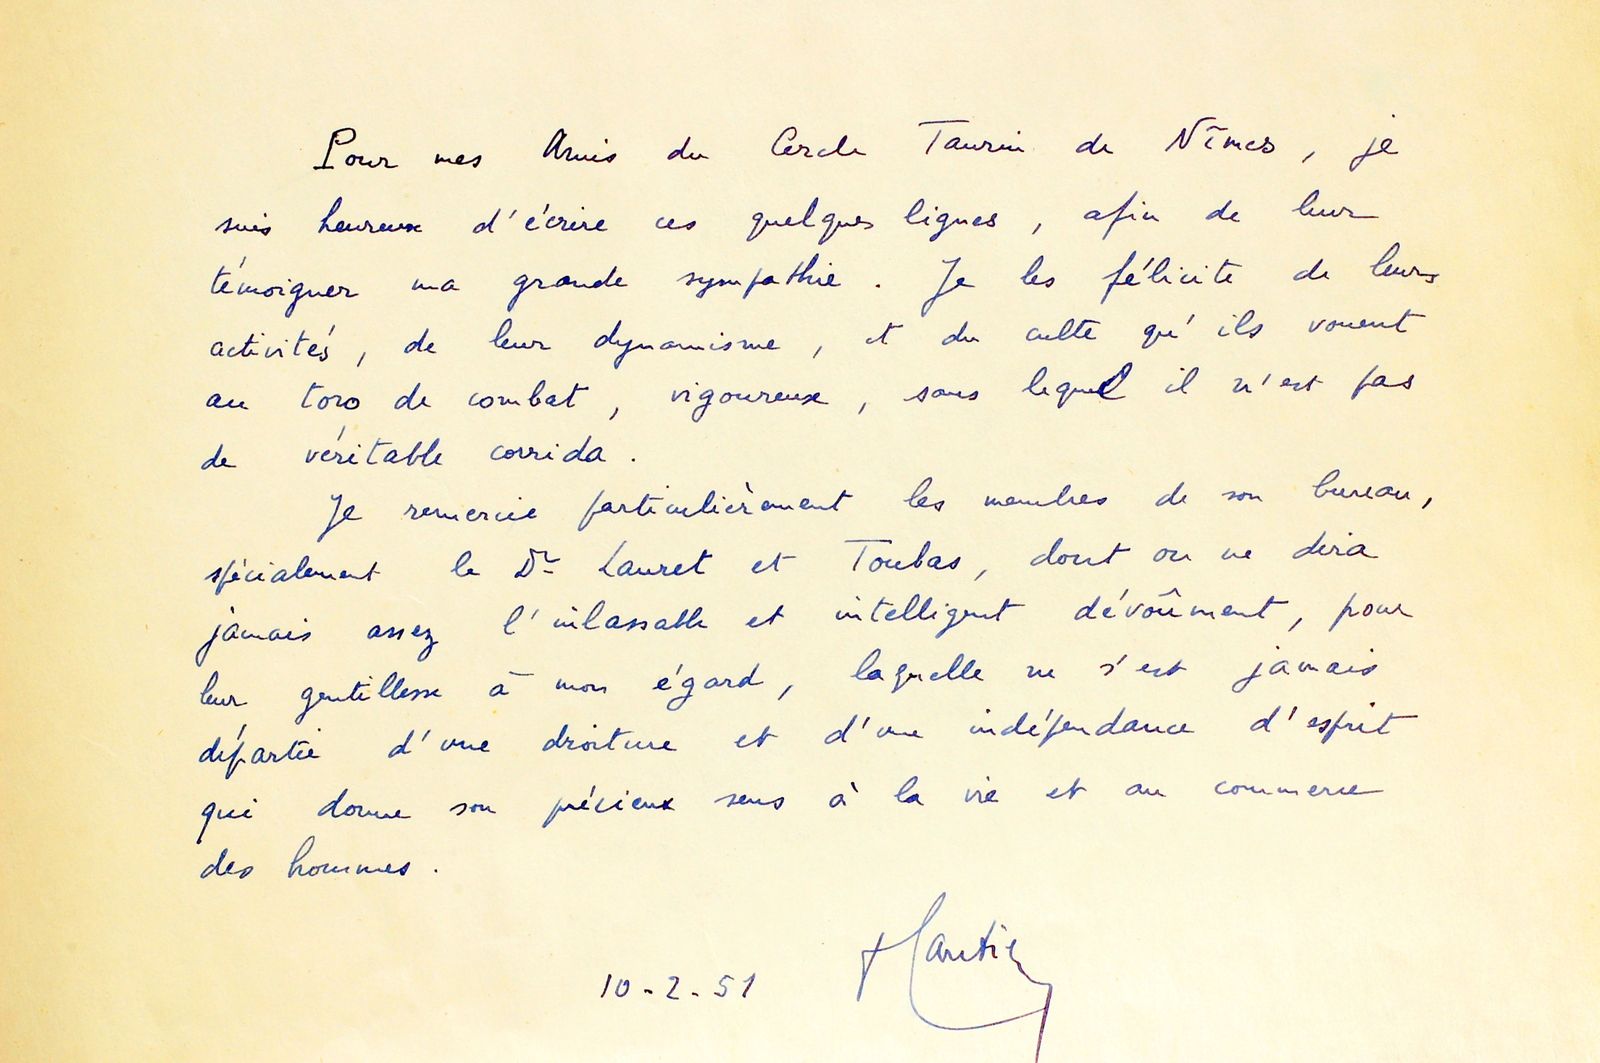 Pour mes Amis du Cercle Taurin de Nîmes, je
suis heureux d'écrire ces quelques lignes, afin de leur
témoigner ma grande sympathie. Je les félicite de leurs
activités, de leur dynamisme, et du culte qu'ils vouent
au toro de combat, vigoureux, sans lequel il n'est pas
de véritable corrida.
Je remercie particulièrement les membres de son bureau,
spécialement le Dr Lauret et Toubas, dont on ne dira
jamais assez l'inlassable et intelligent dévoûment, pour
leur gentillesse à mon égard, laquelle ne s'est jamais
départie d'une droiture et d'une indépendance d'esprit
qui donne son précieux sens à la vie et au commerce
des hommes.
10-2-51